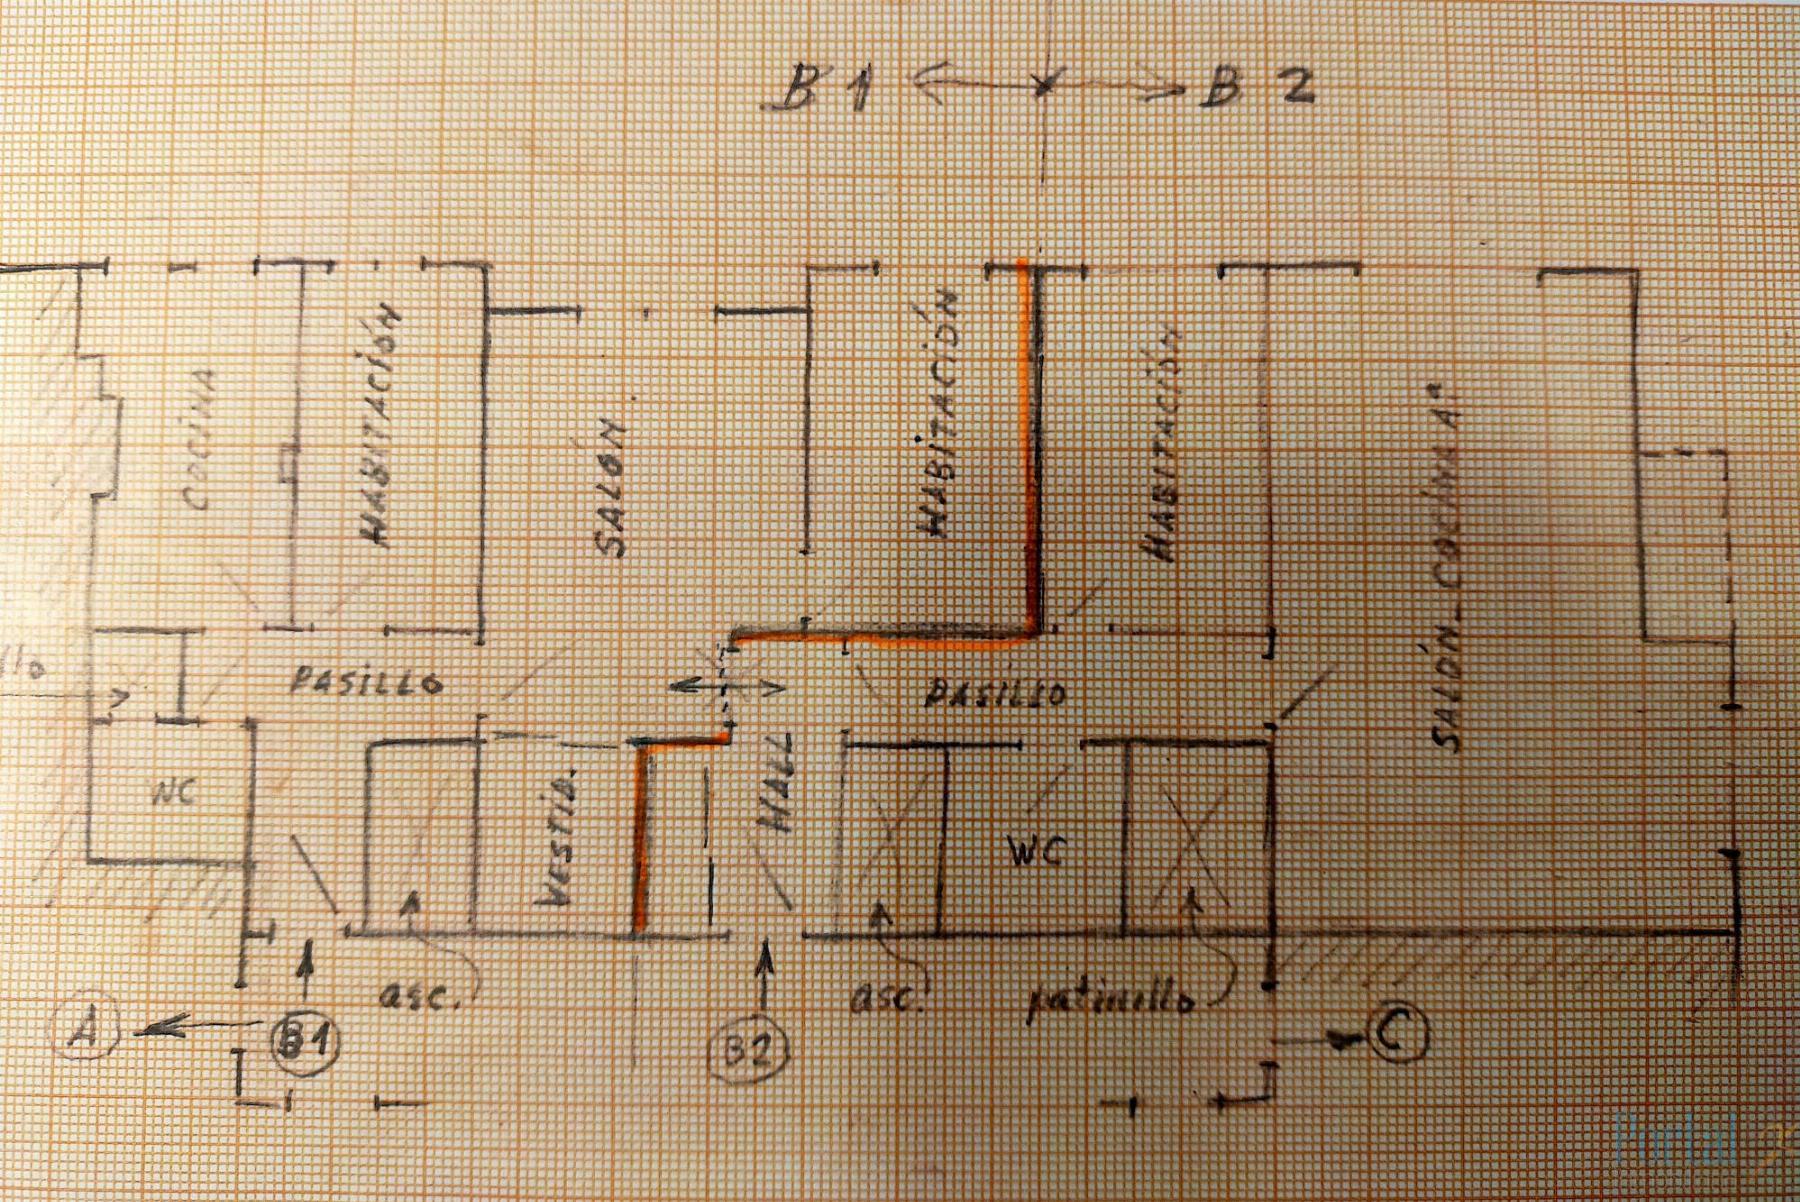 B1
B2
COCINA
HABITACIÓN
SALÓN
HABITACIÓN
HABITACIÓN
SALÓN-COCINA Aª
llo
PASILLO
PASILLO
WC
VESTID.
HALL
WC
asc.
asc.
patinillo
A
B1
B2
C
Portal